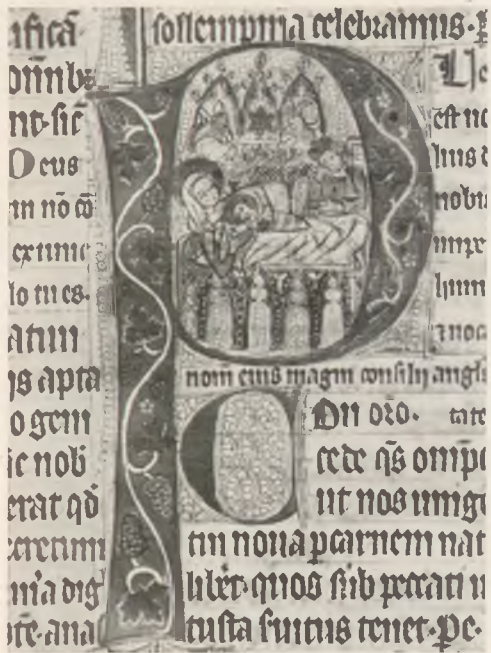 ificā
nt·sic
Deus
m nō cō
eximie
lo tu es·
atum
is apta
o gem
ic nob
erat qđ
mīa dig
ana
sollempnia celebramus· p
Le
est no
lius d
nobis
nom eius magni consilij angls
On oro· tate
cede q̄s omp
ut nos unige
tui noua p carnem nat
liber·quos sub peccati u
tusta suitus tenet·Pe·